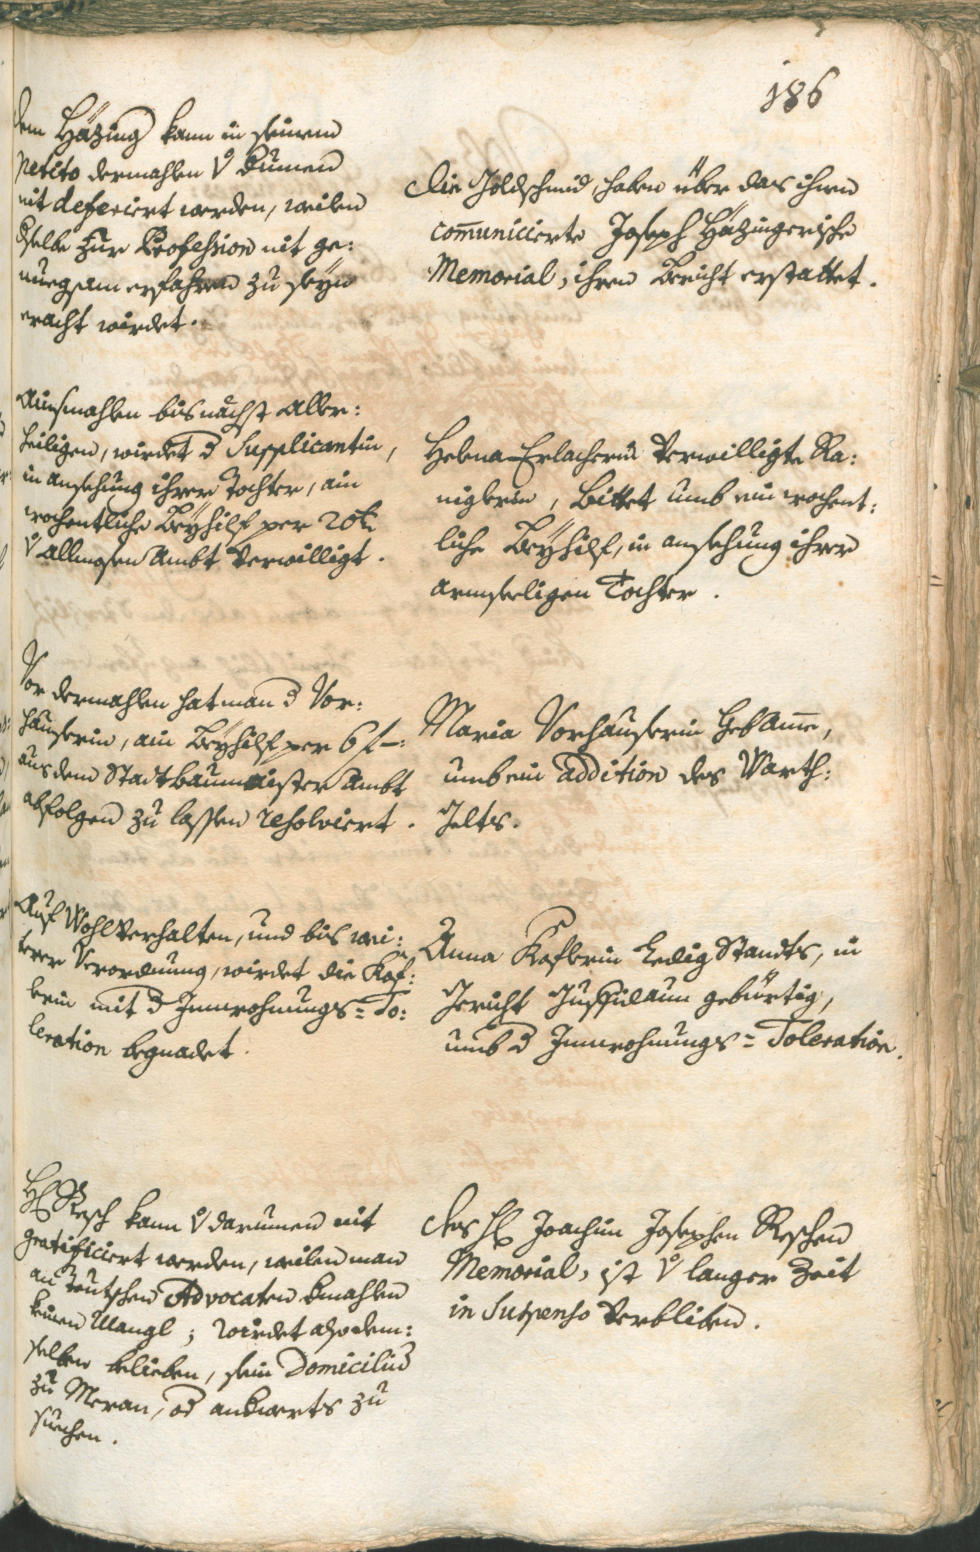 186
dem Häzing kann in seinem
petito dermahlen v̊ darumen
nit deferiert werden, weilen
dselbe zur Profession nit ge:
nuegsam erfahren zu seyn
eracht wirdet.
Die Goldschmid, haben über das ihnen
com̄unicierte Joseph Häzingerische
Memorial, ihren Bericht erstattet.
Ainsmahlen bis nächst Aller:
heiligen, wirdet d Supplicantin,
in ansehung ihrer Tochter, ain
wochentliche Beyhilf per 20 kr
v̊ Allmosen Ambt verwilligt.
Helena Erlacherin verwilligte Ra:
niglerin, Bittet umb ein wochent:
liche Beyhilf, in ansehung ihrer
armseeligen Tochter.
Vor dermahlen hat man d Vor:
hauserin, ain Beyhilf per 6 f –:
aus dem Stadtbaumaister Ambt
abfolgen zu lassen resolviert.
Maria Vorhauserin Hebame,
umb ein addition des Warth:
Gelts.
Auf Wohlverhalten, und bis wei:
terer Verordnung, wirdet die Kof:
lerin mit d Innwohnungs= To:
leration begnadet.
Anna Koflerin Ledig Standts, in
Gericht Gufidaun gebürtig,
umb d Innwohnungs= Toleration.
H Resch kann v̊ darumen nit
gratificiert werden, weilen man
an teutschen Advocaten dmahlen
keinen Mangl; wirdet also dem:
selben belieben, sein Domicilium
zu Meran, od anderwerts zu
suechen.
des H Joachim Josephen Reschen
Memorial, ist v̊ langer Zeit
in Suspenso verbliben.